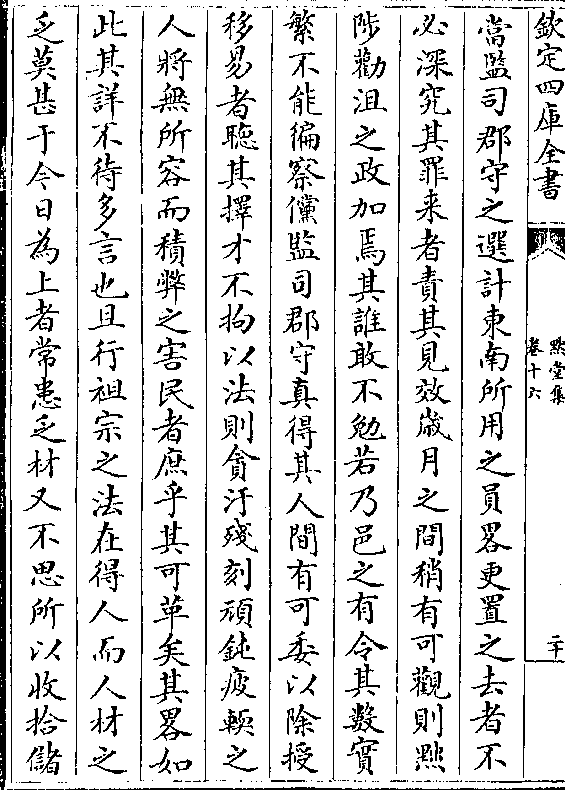 欽定四庫全書
默堂集
卷十六
二十
當監司郡守之選計東南所用之員畧更置之去者不
必深究其罪来者責其見效歳月之間稍有可觀則黜
陟勸沮之政加焉其誰敢不勉若乃邑之有令其數實
繁不能徧察儻監司郡守真得其人間有可委以除授
移易者聴其擇才不拘以法則貪汙殘刻頑鈍疲輭之
人將無所容而積弊之害民者庶乎其可革矣其畧如
此其詳不待多言也且行祖宗之法在得人而人材之
乏莫甚于今日為上者常患乏材又不思所以收拾儲